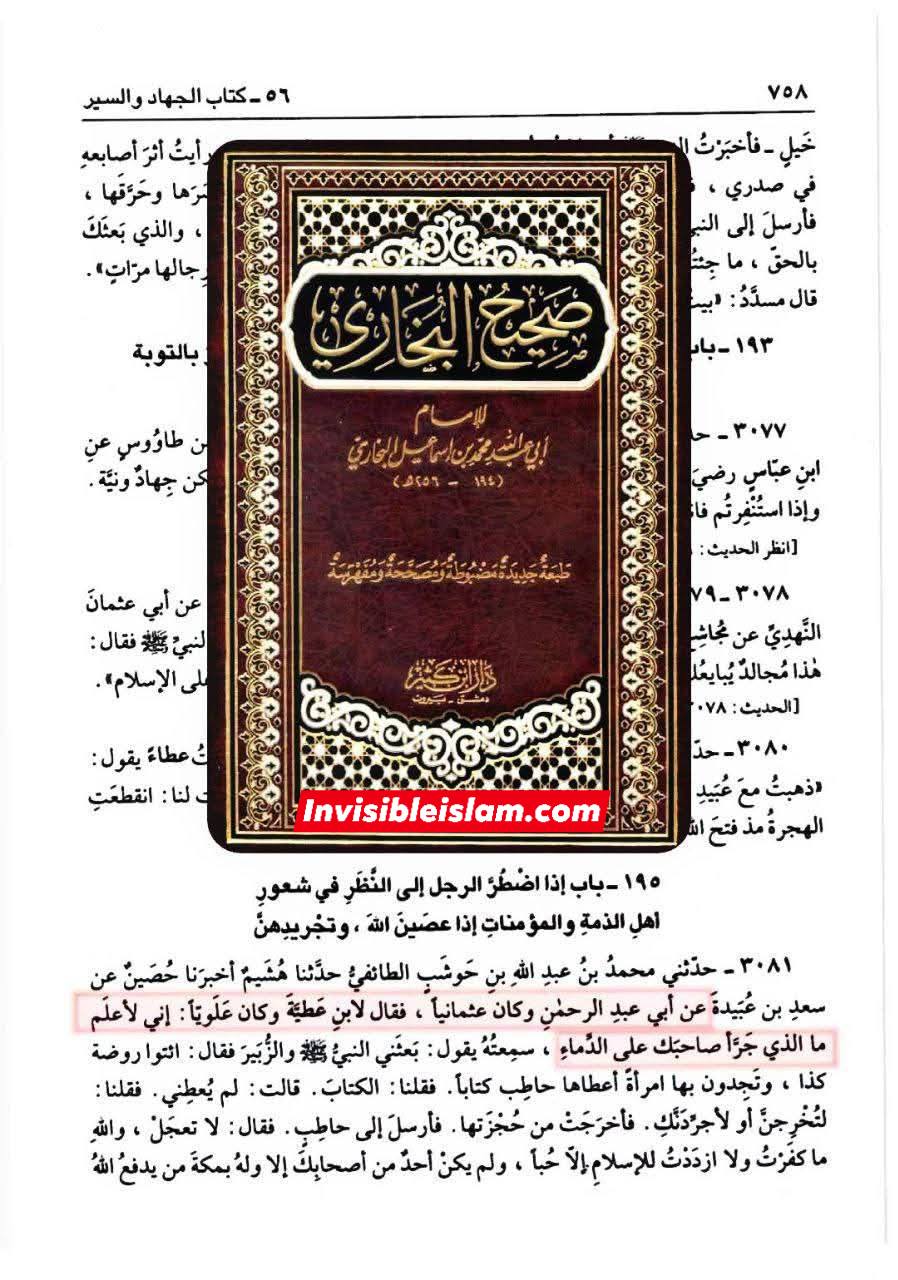 ٧٥٨
٥٦ ـ كتاب الجهاد والسير
خَيلٍ ـ فأخبَرْتُ
رأيتُ أثرَ أصابعهِ
في صدري ،
وحَرَّقَها ،
فأرسلَ إلى
، والذي بَعثَكَ
بالحقّ ، ما
مرّاتٍ» .
قال مسدَّدُ :
١٩٣ ـ
بالتوبة
٣٠٧٧ ـ
طاوُوسٍ عنِ
ابنِ عبّاسٍ
جِهادٌ ونيَّة .
وإذا استُنْفِرتُم
[انظر الحديث :
٣٠٧٨
عن أبي عثمانَ
النَّهديِّ عن
ﷺ فقال :
هٰذا مُجالدٌ
الإسلام» .
[الحديث :
٣٠٨٠ ـ
عطاءً يقول :
«ذهبتُ معَ عُبَيدِ
لنا : انقطعَتِ
الهجرةُ مذ فتحَ
صَحِيحُ البُخَارِيِّ
للإمام
أبي عبد الله محمد بن إسماعيل البخاري
(١٩٤ - ٢٥٦هـ)
طَبعَةٌ جَدِيدَةٌ مَضبُوطَةٌ وَمُصَحَّحَةٌ وَمُفَهْرَسَةٌ
دار ابن كثير
دمشق - بيروت
Invisibleislam.com
١٩٥ ـ باب إذا اضْطُرَّ الرجل إلى النَّظَرِ في شعورِ
أهلِ الذمةِ والمؤمناتِ إذا عصَينَ اللهَ ، وتجْريدِهنَّ
٣٠٨١ ـ حدّثني محمدُ بنُ عبدِ اللهِ بنِ حَوشَبٍ الطائفيُّ حدَّثنا هُشَيمٌ أخبرَنا حُصَينٌ عن
سعدِ بن عُبَيدةَ عن أبي عبدِ الرحمٰنِ وكان عثمانياً ، فقال لابنِ عَطيَّةَ وكان عَلَويّاً : إني لأعلَم
ما الذي جَرَّأ صاحبَك على الدِّماءِ ، سمِعتُه يقول : بَعثَني النبيُّ ﷺ والزُّبَيرَ فقال : ائتوا روضة
كذا ، وتَجِدون بها امرأةً أعطاها حاطِب كتاباً . فقلنا : الكتابَ . قالت : لم يُعطِني . فقلنا :
لتُخْرِجنَّ أو لأجرِّدَنَّكِ . فأخرَجَتْ من حُجْزَتها . فأرسلَ إلى حاطِبٍ . فقال : لا تعجَلْ ، واللهِ
ما كفَرْتُ ولا ازدَدْتُ للإسلامِ إلاّ حُباً ، ولم يكنْ أحدٌ من أصحابِكَ إلا ولهُ بمكةَ من يدفعُ اللهُ